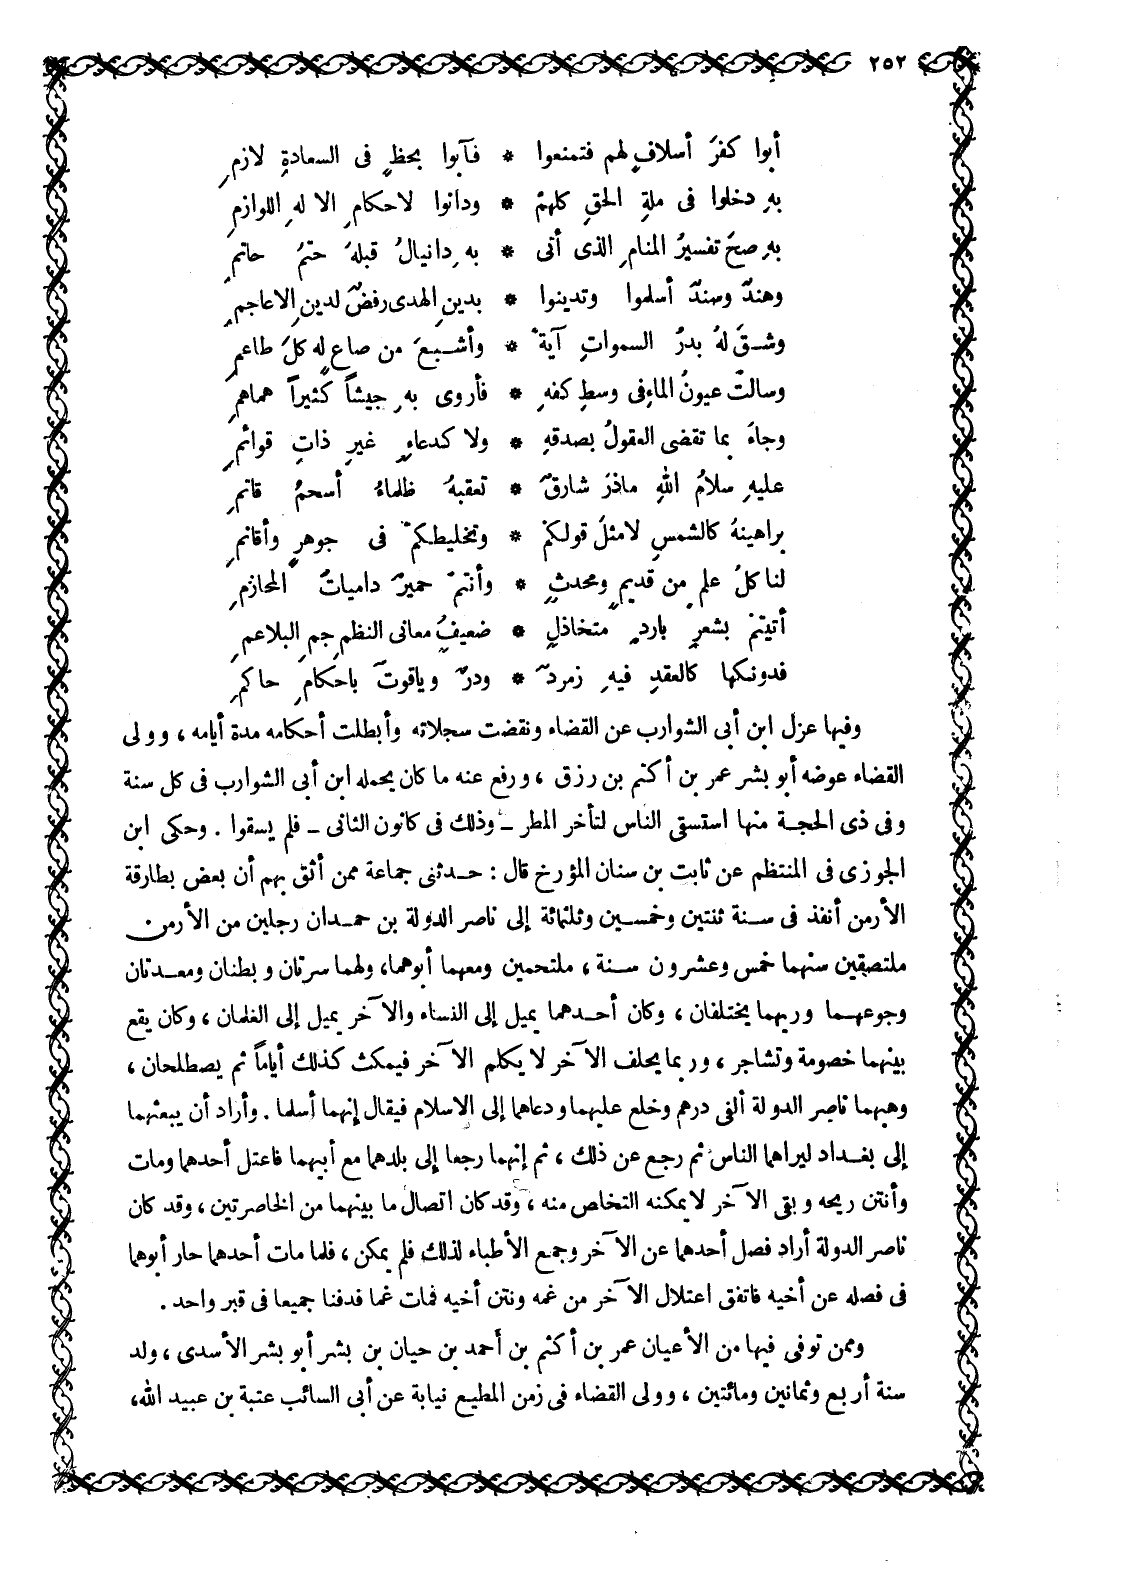 ٢٥٢
أبوا كفرَ أسلافٍ لهم فتمنعوا * فآبوا بحظٍ فى السعادةِ لازمِ
بهِ دخلوا فى ملةِ الحقِ كلهمْ * ودانوا لاحكامِ الا لهِ اللوازمِ
بهِ صحَ تفسيرُ المنامِ الذى أتى * بهِ دانيالُ قبلهَ حتمُ حاتمِ
وهندٌ وسندٌ أسلموا وتدينوا * بدينِ الهدى رفضٌ لدينِ الاعاجمِ
وشقَ لهُ بدرُ السمواتِ آيةً * وأشبعَ من صاعٍ له كلَ طاعمِ
وسالتْ عيونُ الماءِ فى وسطِ كفهِ * فأروى بهِ جيشاً كثيراً هماهمِ
وجاءَ بما تقضى العقولُ بصدقهِ * ولا كدعاءٍ غيرِ ذاتِ قوائمِ
عليهِ سلامُ اللهِ ماذرَ شارقٌ * تعقبهُ ظلماءُ أسحمُ قاتمِ
براهينهُ كالشمسِ لامثلَ قولكمْ * وتخليطكمْ فى جوهرٍ وأقانمِ
لنا كلُ علمٍ من قديمٍ ومحدثٍ * وأنتمْ حميرٌ دامياتُ المحازمِ
أتيتمْ بشعرٍ باردٍ متخاذلٍ * ضعيفُ معانى النظمِ جمِ البلاعمِ
فدونكها كالعقدِ فيهِ زمردٌ * ودرٌ وياقوتٌ باحكامِ حاكمِ
وفيها عزل ابن أبى الشوارب عن القضاء ونقضت سجلاته وأبطلت أحكامه مدة أيامه ، وولى
القضاء عوضه أبو بشر عمر بن أكثم بن رزق ، ورفع عنه ما كان يحمله ابن أبى الشوارب فى كل سنة
وفى ذى الحجة منها استسقى الناس لتأخر المطر ــ وذلك فى كانون الثانى ــ فلم يسقوا . وحكى ابن
الجوزى فى المنتظم عن ثابت بن سنان المؤرخ قال : حدثنى جماعة ممن أثق بهم أن بعض بطارقة
الأرمن أنفذ فى سنة ثنتين وخمسين وثلثمائة إلى ناصر الدولة بن حمدان رجلين من الأرمن
ملتصقين سنهما خمس وعشرون سنة ، ملتحمين ومعهما أبوهما، ولهما سرتان وبطنان ومعدتان
وجوعهما وريهما يختلفان ، وكان أحدهما يميل إلى النساء والآخر يميل إلى الغلمان ، وكان يقع
بينهما خصومة وتشاجر ، وربما يحلف الآخر لا يكلم الآخر فيمكث كذلك أياماً ثم يصطلحان ،
وهبهما ناصر الدولة ألفى درهم وخلع عليهما ودعاهما إلى الاسلام فيقال إنهما أسلما . وأراد أن يبعثهما
إلى بغداد ليراهما الناس ثم رجع عن ذلك ، ثم إنهما رجعا إلى بلدهما مع أبيهما فاعتل أحدهما ومات
وأنتن ريحه وبقى الآخر لا يمكنه التخلص منه ، وقد كان اتصال ما بينهما من الخاصرتين ، وقد كان
ناصر الدولة أراد فصل أحدهما عن الآخر وجمع الأطباء لذلك فلم يمكن ، فلما مات أحدهما حار أبوهما
فى فصله عن أخيه فاتفق اعتلال الآخر من غمه ونتن أخيه فمات غما فدفنا جميعا فى قبر واحد .
وممن توفى فيها من الأعيان عمر بن أكثم بن أحمد بن حيان بن بشر أبو بشر الأسدى ، ولد
سنة أربع وثمانين ومائتين ، وولى القضاء فى زمن المطيع نيابة عن أبى السائب عتبة بن عبيد الله،